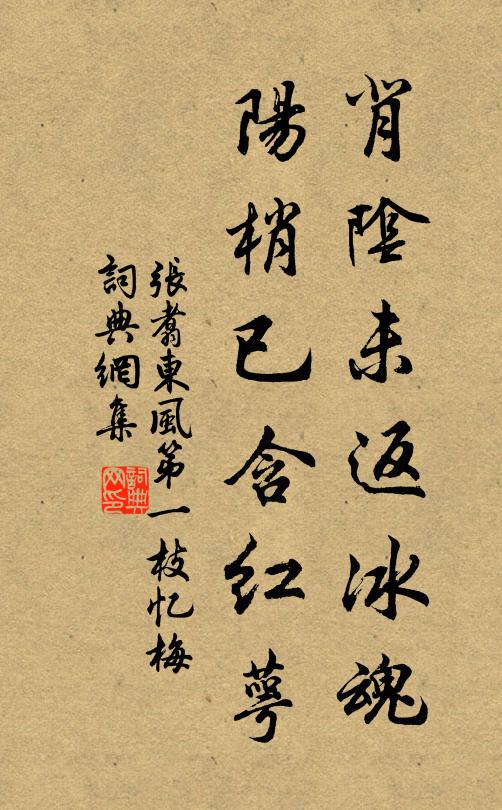 背陰未返冰魂
陽梢已含紅萼
張翥東風第一枝忆梅
詞典網集
詞典网印